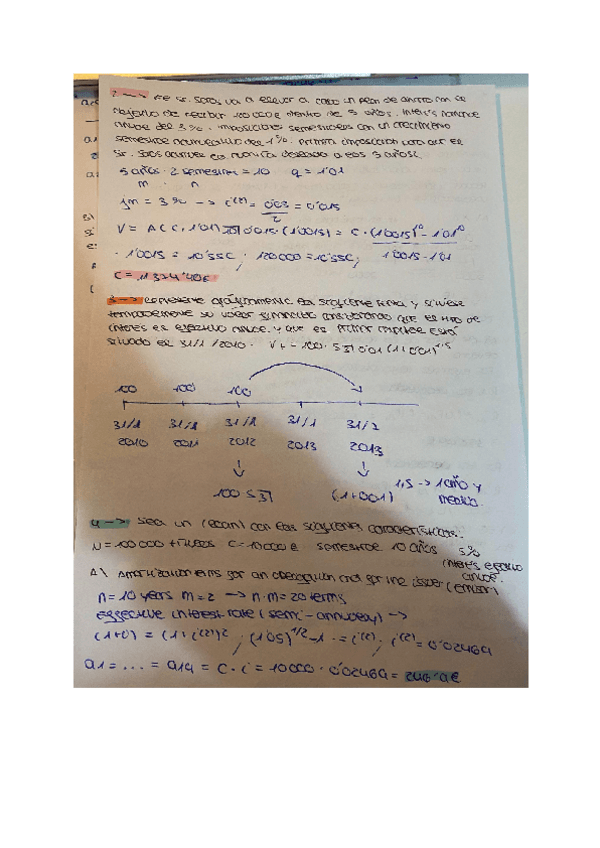 2 → El Sr. Soros va a llevar a cabo un plan de ahorro con el
objetivo de recibir 120000€ dentro de 5 años. Interés nominal
anual del 3%. Imposiciones semestrales con un crecimiento
semestral acumulativo del 1%. Primera imposición para que el
Sr. Soros la cuantía deseada a los 5 años.
5 años · 2 semestres = 10 q = 1'01
m n
jm = 3% → i(2) = 0'03/2 = 0'015
V = A(C, 1'01) 10 0'015 · (1'0015) = C · (1'0015)^10 - 1'01^10 / 1'0015 - 1'01
· 1'0015 = 10'55C ; 120000 = 10'55C ;
C = 11374'40€
3 → Represente gráficamente la siguiente renta y sitúese
temporalmente su valor considerando que el tipo de
interés es efectivo anual y que el primer capital está
situado el 31/1/2010. Vt = 100 · S 3 0'01 (1+0'01)^1'5
100 100 100
31/1 31/1 31/1 31/1 31/2
2010 2011 2012 2013 2013
↓ ↓
100 S 3 (1+0'01) 1,5 → 1 año y
medio.
4 → Sea un (loan) con las siguientes características:
N = 100000 títulos C = 10000€ semestral 10 años 5%
interés efectivo
anual.
A) Amortization terms for an obligation and for the issuer (emisor)
n = 10 years m = 2 → n·m = 20 terms
effective interest rate (semi-annually) →
(1+i) = (1+i(2))2 ; (1'05)^1/2 - 1 = i(2) ; i(2) = 0'02469
a1 = ... = a19 = C · i = 10000 · 0'02469 = 246'9€